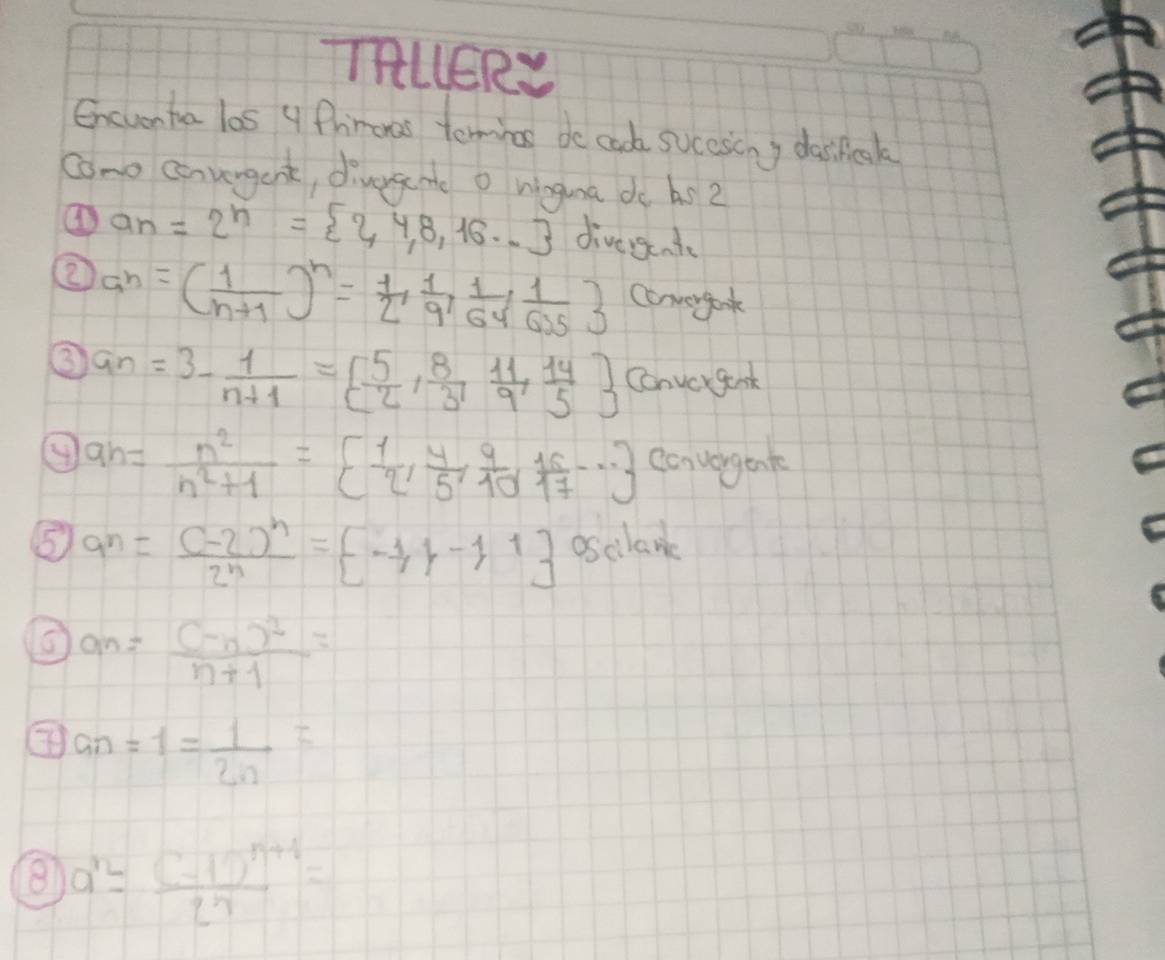 TALLER
Encuentra los 4 Primeros terminos de cada sucesión y clasificala
Como convergente, divergente o ninguna de las 2
① an = 2^n = {2, 4, 8, 16...} divergente
② an = (1/(n+1))^n = 1/2, 1/9, 1/64, 1/625 } Convergente
③ an = 3 - 1/(n+1) = {5/2, 8/3, 11/9, 14/5 } Convergente
④ an = n^2/(n^2+1) = {1/2, 4/5, 9/10, 16/17 ...} Convergente
⑤ an = (-2)^n/2^n = {-1, 1, -1, 1 } oscilante
⑥ an = (-n)^2/(n+1) =
⑦ an = 1 = 1/2n =
⑧ a^n = (-1)^(n+1)/2n =